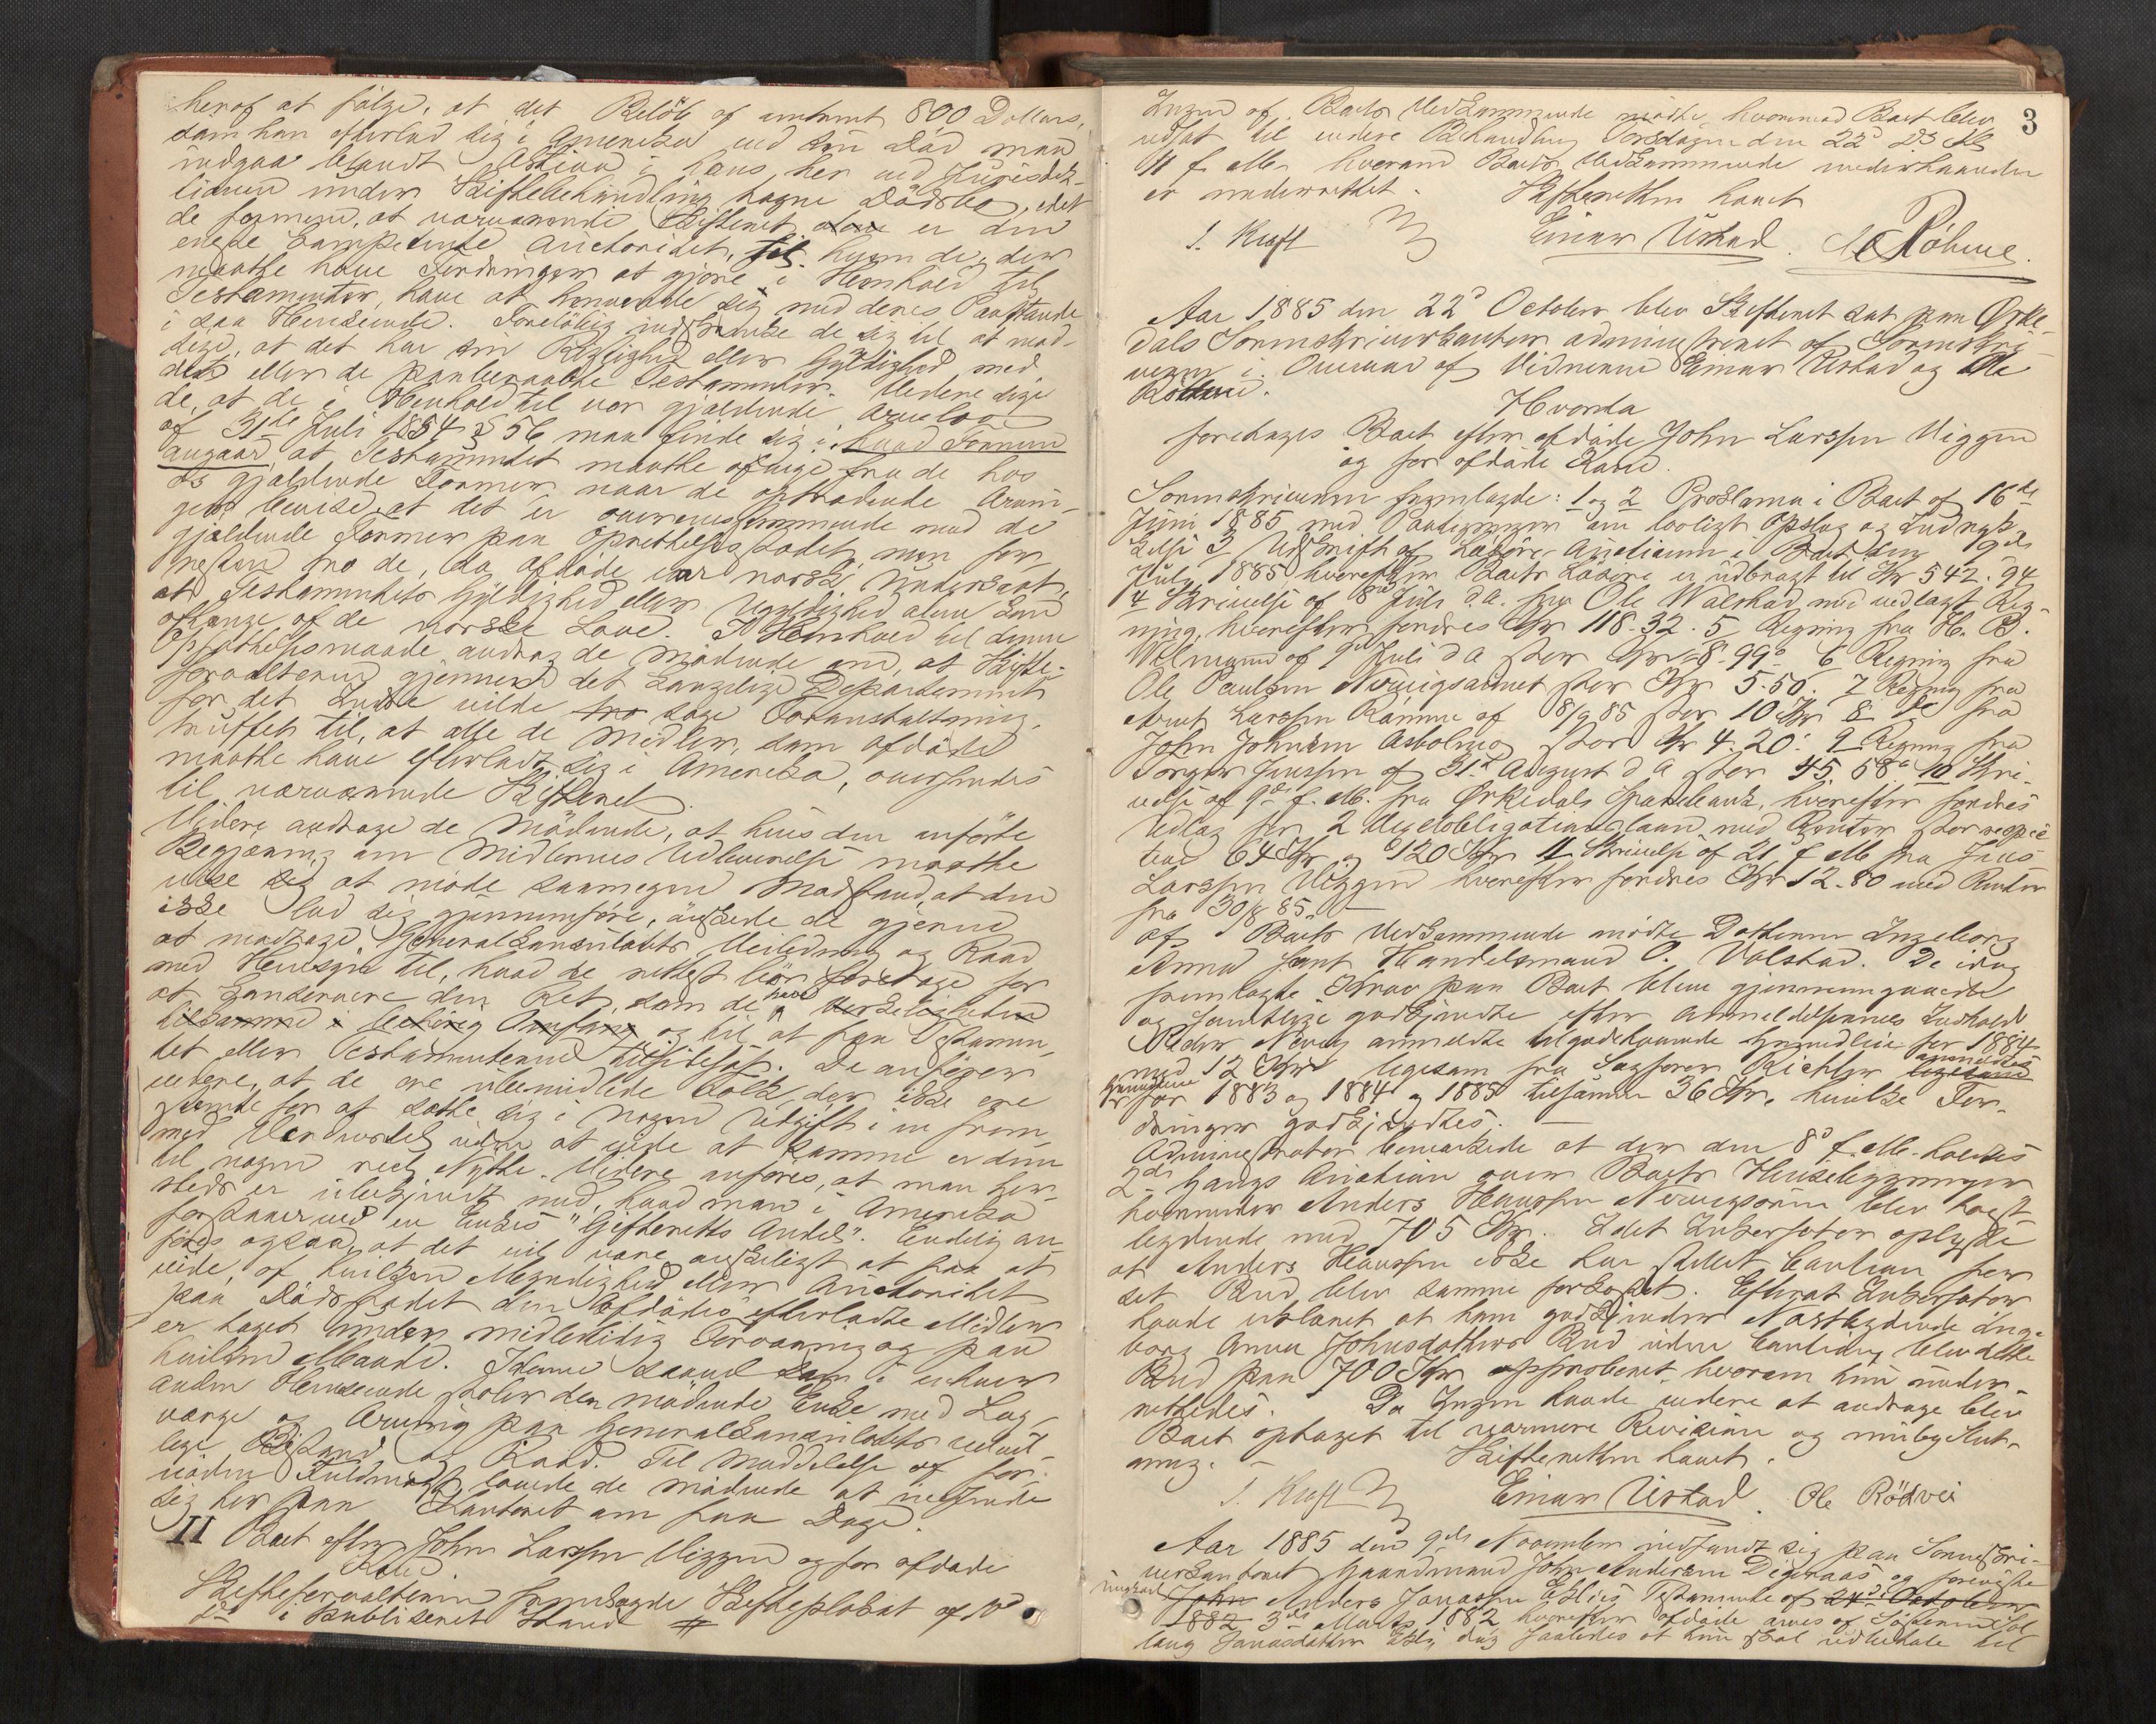 herof at følge, at det Beløb af omtrent 800 Dollars,
som han efterlod sig i Amerika ved sin Død maa
indgaa blandt Aktiva i hans, her ved Jurisdik-
tionen under Skiftebehandling tagne Dödsbo, idet
de formene, at nærværende Skifteret er den
eneste competente Auctoritet, til hvem de, der
maatte have Fordringer at gjøre i Henhold til
Testamenter, have at henvende sig med deres Paastande
i saa Henseende. Foreløbig indskrænke de sig til at mod-
sige, at det har sin Rigtighed eller Gyldighed med
det eller de paaberaabte Testamenter. Videre sige
de, at de i Henhold til vor gjældende Arvelov
af 31te Juli 1854 § 56 maa finde sig i, hvad Formen
angaar, at Testamentet maatte afvige fra de hos
os gjældende Former naar de optrædende Arvin-
ger bevise, at det er overensstemmende med de
gjældende Former paa Oprettelsesstedet, men for-
resten tro de, da afdøde var norsk Undersaat,
at Testamentets Gyldighed eller Ugyldighed alene kan
afhænge af de norske Love. I Henhold til denne
Opfattelsesmaade androg de mødende om, at Skifte-
forvalteren gjennem det kongelige Departement
for det Indre vilde tage Foranstaltning
truffet til, at alle de Midler, som afdøde
maatte have efterladt sig i Amerika, oversendes
til nærværende Skifteret.
Videre androge de Mødende, at hvis den anførte
Begjæring om Midlernes Udleverelse maatte
vise sig at møde saamegen Modstand, at den
ikke lod sig gjennemføre, ønskede de gjerne
at modtage Generalkonsulatets Veiledning og Raad
med Hensyn til, hvad de rettest bør foretage for
at konservere den Ret, som de have
og til at faa Testamen-
tet eller Testamenterne tilsidesat. De anfører
videre, at de ere ubemidlede Folk, der ikke ere
stemte for at sætte sig i nogen Udgift i en frem-
med Verdensdel uden at vide at komme er dem
til nogen reel Nytte. Videre anføres, at man her-
steds er ubekjendt med, hvad man i Amerika
forstaar ved en Enkes "Gifteretts Andel". Endelig an-
føres ogsaa, at det vil være ønskeligt at faa at
vide, af hvilken Myndighed eller Auctoritet
paa Dødsstedet den Afdødes efterladte Midler
er taget under midlertidig Forvaring og paa
hvilken Maade. I denne saavel som i enhver
anden Henseende stoler den mødende Enke med Lag-
værge og Arving paa Generalkonsulatets velvil-
lige Bistand og Raad. Til Meddelelse af for-
nøden Fuldmagt lovede de mødende at indfinde
sig her paa Kontoret om faa Dage.
II Boet efter John Larssen Viggen og før afdøde
Kone.
Skifteforvalteren fremlagde Skifteplakat af 10d
i publiceret Stand #
3
Ingen af Boets Vedkommende mødte, hvormed Boet blev
udsat til videre Behandling Torsdagen den 22d ds Kl
11 f. M. hvorom Boets Vedkommende underhaanden
er underrettet. Skifteretten hævet
J. Kraft Einar Ustad. Röhme.
Aar 1885 den 22d October blev Skifteret sat paa Ørke-
dals Sorenskriverkontor administreret af Sorenskri-
veren i Overvær af Vidnerne Einar Ustad og Ole
Hvorda
foretages Boet efter afdøde John Larssen Viggen
og før afdøde Kone.
Sorenskriveren fremlagde: 1 og 2 Proklama i Boet af 16de
Juni 1885 med Paategninger om lovligt Opslag og Indryk-
kelse 3 Udskrift af Løsøre-Auctionen i Boet den 9de
July 1885 hvorefter Boets Løsøre er udbragt til Kr 542.94
4 Skrivelse af 8de Juli d.a. fra Ole Walstad med vedlagt Reg-
ning, hvorefter fordres Kr 118.32. 5 Regning fra H. B.
af 9de Juli d a stor Kr 8.99. 6 Regning fra
Ole Paulsen stor Kr 5.50. 7 Regning fra
Arnt Larssen af 8/9 85 stor 10 Kr 8 do fra
John Johnsen stor Kr 4.20. 9 Regning fra
Torger Jenssen af 31te August d a stor 45.58. 10 Skri-
velse af 9de f. M. fra Ørkedals Sparebank, hvorefter fordres
Udlæg for 2 Vexelobligationslaan med Renter stor respec-
tive 64 Kr og 120 Kr 11 Skrivelse af 21 f M fra Jens
Larssen Viggen hvorefter fordres Kr 12.80 med Renter
fra 30/8 85. —
Af Boets Vedkommende mødte Datteren Ingeborg
Anna samt Handelsmand O. Valstad. De idag
fremlagte Krav paa Boet bleve gjennemgaaede
og samtlige godkjendte efter Anmeldelsernes Indhold.
Peder anmeldte tilgodehavende Grundleie for 1884
med 12 Kr ligesom fra Sagfører Richter anmeldtes
Grundleie for 1883 og 1884 og 1885 tilsammen 36 Kr, hvilke For-
dringer godkjendtes. —
Administrator bemærkede at der den 8d f. M. holdtes
2den Gangs Auction over Boets Huusebygninger
hvorunder Anders Hanssen blev høist-
bydende med 705 Kr. Idet Inkassator oplyste
at Anders Hanssen ikke har stillet Caution for
sit Bud, blev samme forkastet. Efterat Inkassator
havde erklæret at han godkjender Næstbydende Inge-
borg Anna Johnsdatters Bud uden Caution, blev dette
Bud paa 700 Kr approberet, hvorom hun under-
rettedes. Da Ingen havde videre at andrage blev
Boet optaget til nærmere Revision og mulig Slut-
ning. — Skifteretten hævet.
J. Kraft Einar Ustad. Ole Rödvei
Aar 1885 den 9de November indfandt sig paa Sorenskri-
verkontoret Gaardmand John Anderssen Digeraas og foreviste
John Anders Jonassen Testamente af 24d October
1882 3de Marts 1882 hvorefter afdøde arves af Søsteren
Jonasdatter dog saaledes at hun skal udbetale til